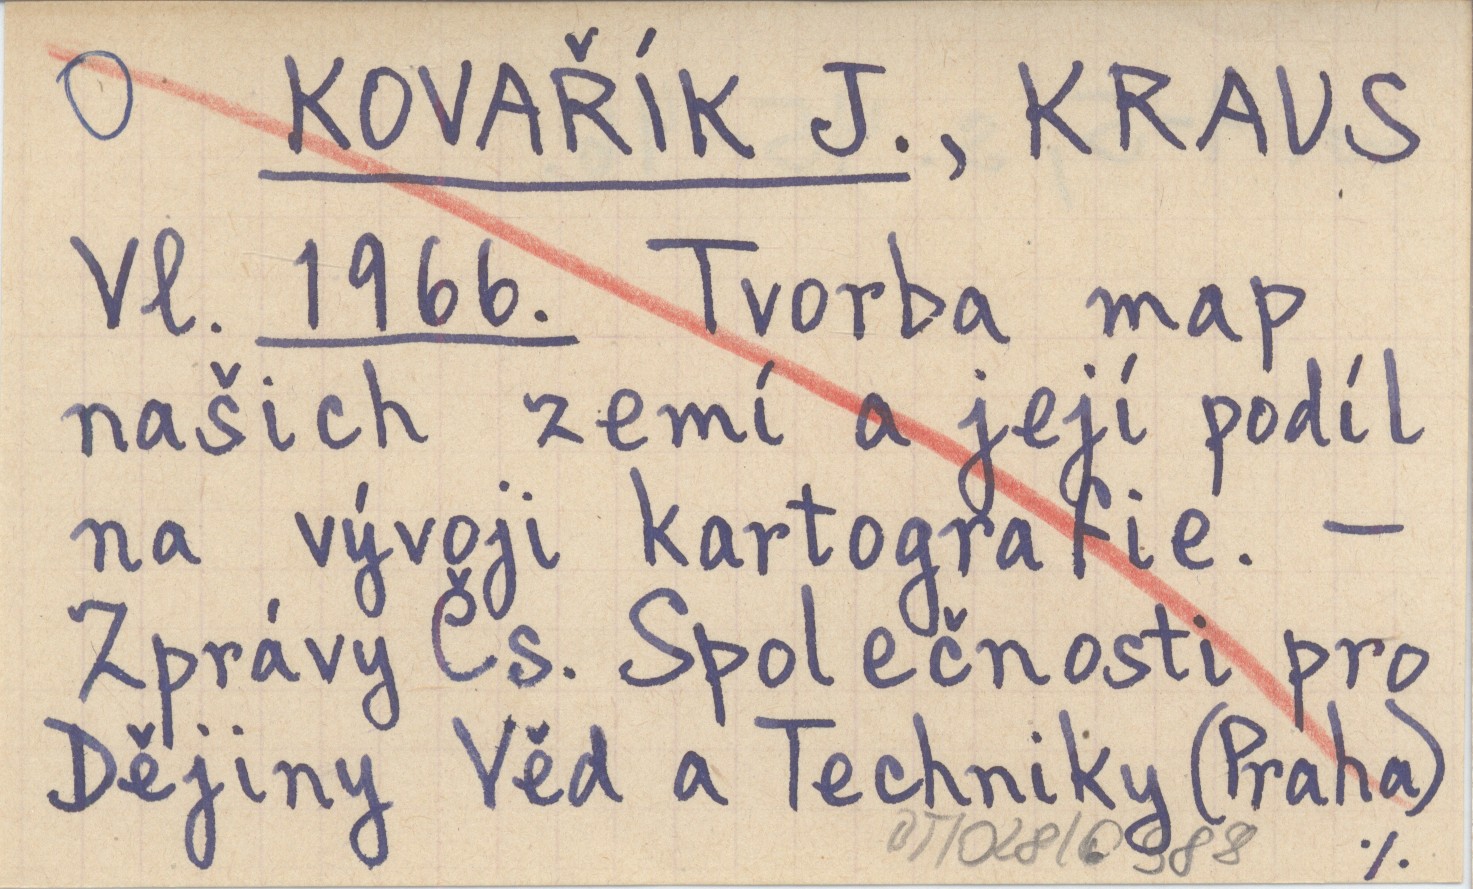 O KOVAŘÍK J., KRAUS
Vl. 1966. Tvorba map
našich zemí a její podíl
na vývoji kartografie. –
Zprávy Čs. Společnosti pro
Dějiny Věd a Techniky (Praha)
./.